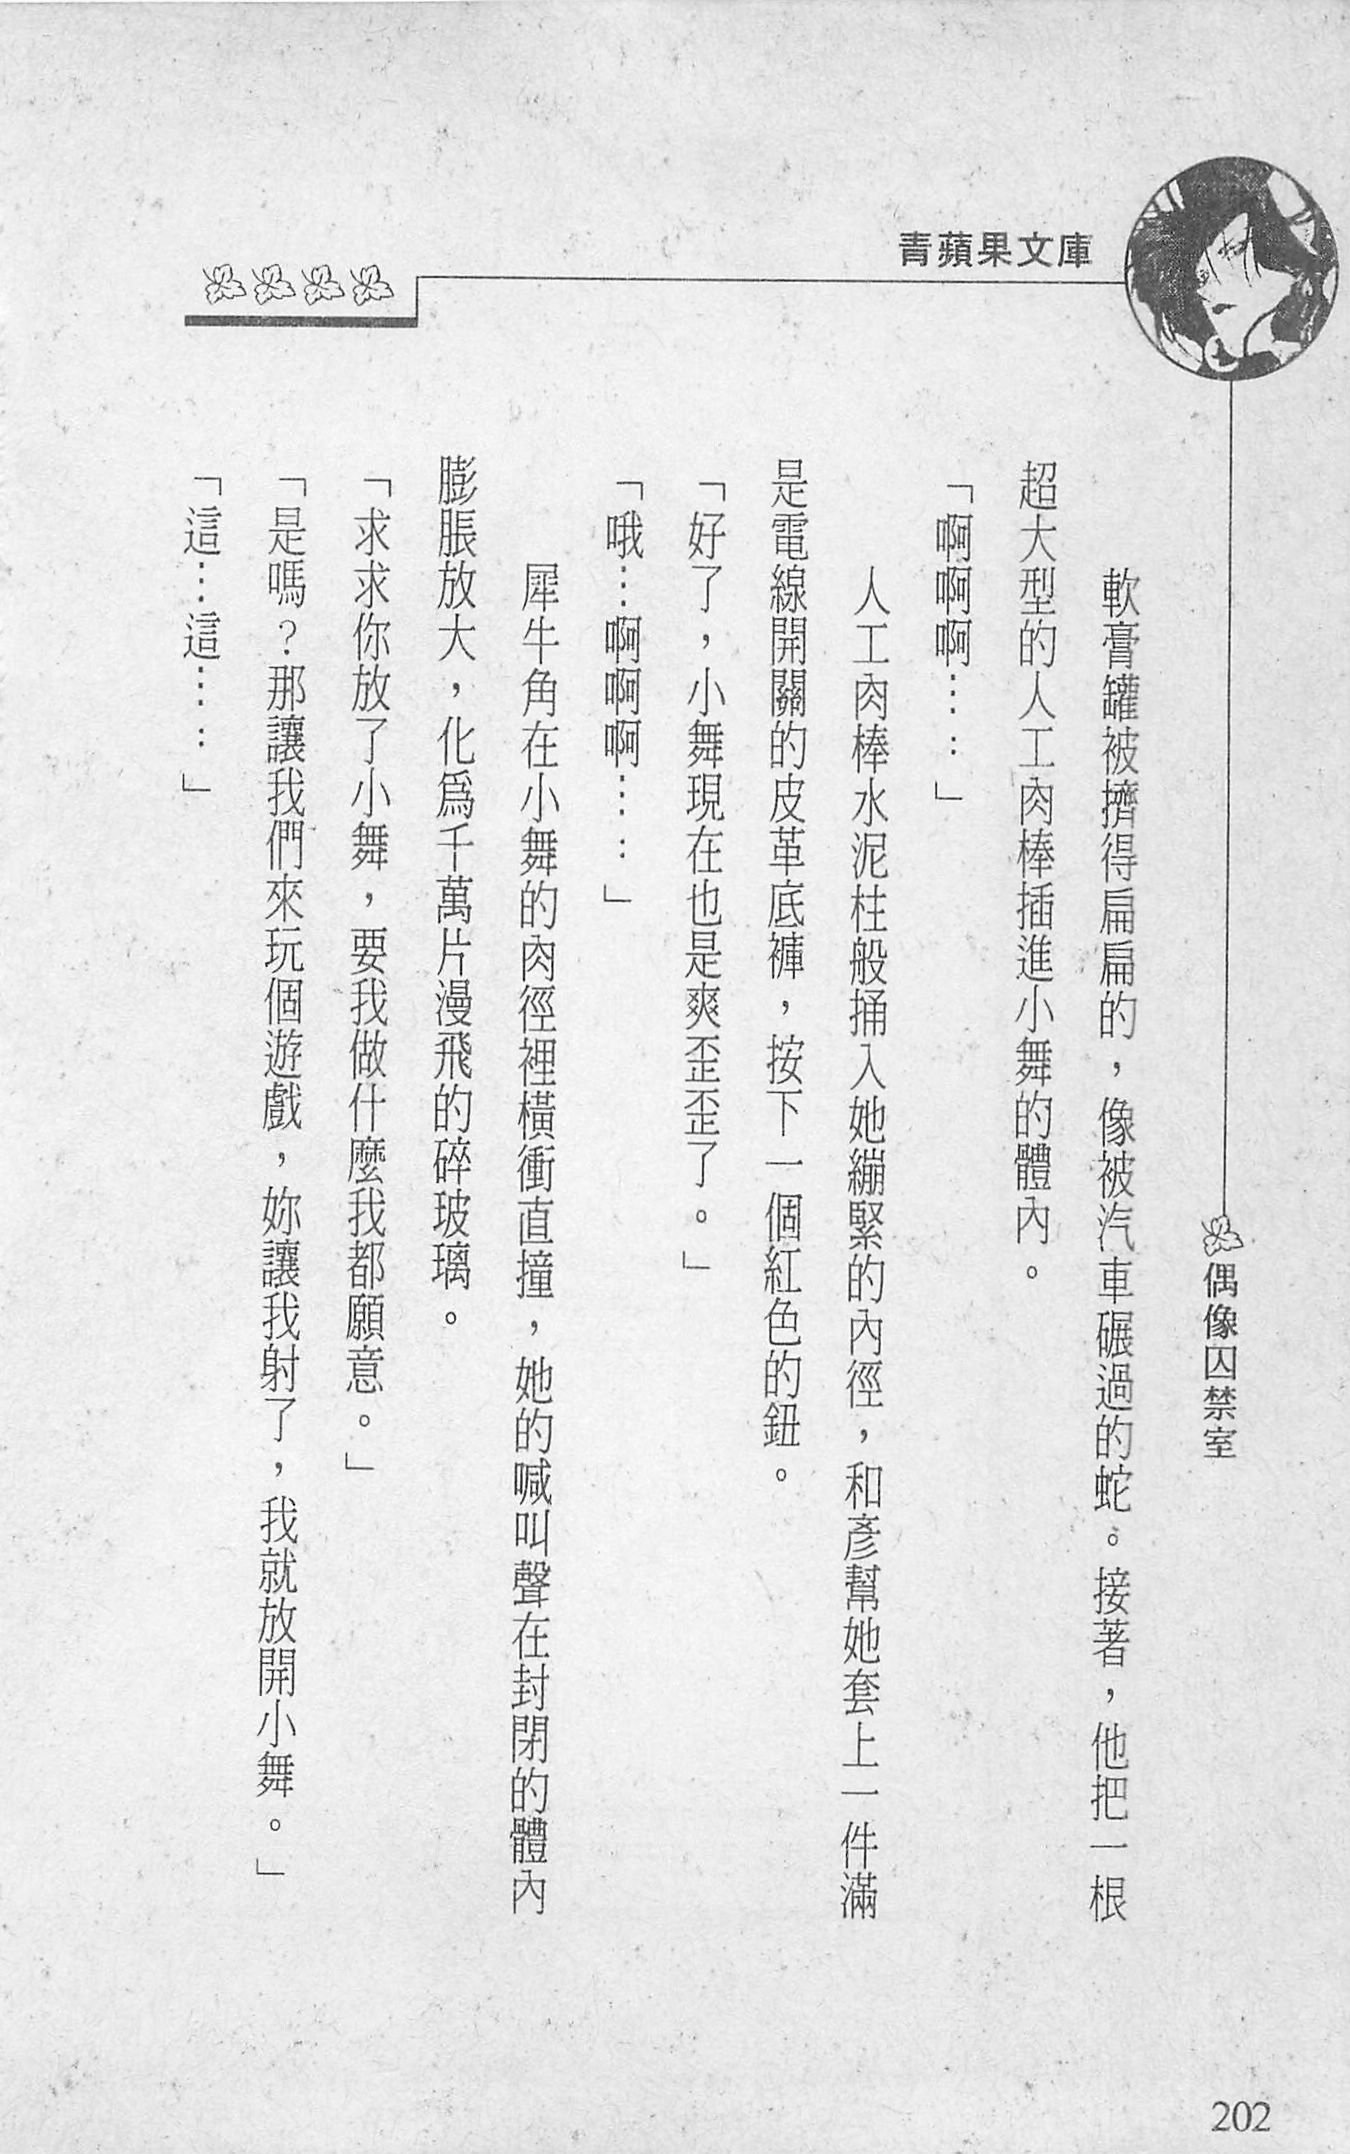 青蘋果文庫
偶像囚禁室
軟膏罐被擠得扁扁的，像被汽車碾過的蛇。接著，他把一根
超大型的人工肉棒插進小舞的體內。
「啊啊啊……」
人工肉棒水泥柱般捅入她繃緊的內徑，和彥幫她套上一件滿
是電線開關的皮革底褲，按下一個紅色的鈕。
「好了，小舞現在也是爽歪歪了。」
「哦…啊啊啊……」
犀牛角在小舞的肉徑裡橫衝直撞，她的喊叫聲在封閉的體內
膨脹放大，化爲千萬片漫飛的碎玻璃。
「求求你放了小舞，要我做什麼我都願意。」
「是嗎？那讓我們來玩個遊戲，妳讓我射了，我就放開小舞。」
「這…這……」
202